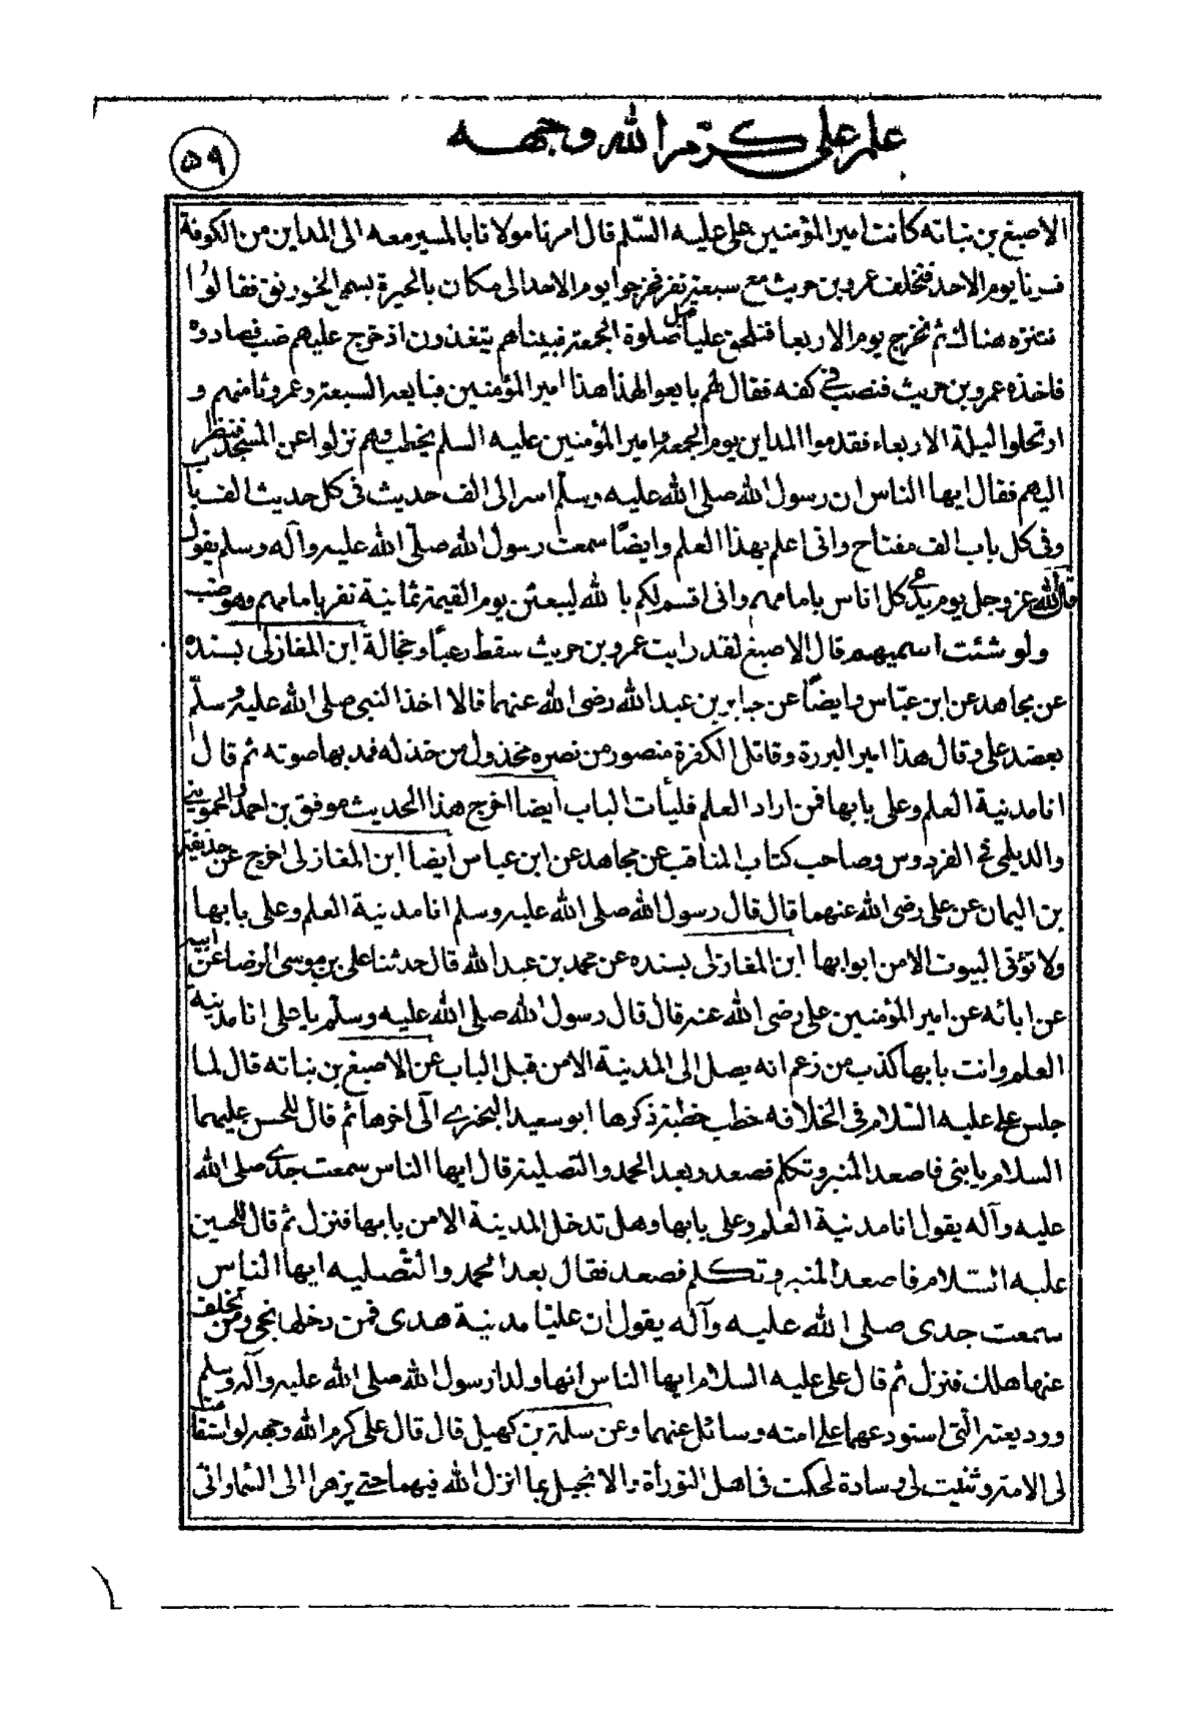 علم علي كرّم الله وجهه
٥٩
الاصبغ بن نباته كاتب امير المؤمنين علي عليه السّلم قال امرنا مولانا بالمسير معه الى المداين من الكوفة
فسرنا يوم الاحد فتخلف عمرو بن حريث مع سبعة نفر فخرجوا يوم الاحد الى مكان بالحيرة يسمى الخورنق فقالوا
نتنزه هناك ثم نخرج يوم الاربعا فنلحق علياً قبل صلوة الجمعة فبيناهم يتغذون اذ خرج عليهم ضب فصادوه
فاخذه عمرو بن حريث فنصب في كفه فقال لهم بايعوا لهذا هذا امير المؤمنين فبايعه السبعة وعمرو ثامنهم و
ارتحلوا ليلة الاربعاء فقدموا المداين يوم الجمعة وامير المؤمنين عليه السلم يخطب وهم نزلوا عن المسجد فنظر
اليهم فقال ايها الناس ان رسول الله صلى الله عليه وسلّم اسر الى الف حديث في كل حديث الف باب
وفي كل باب الف مفتاح واني اعلم بهذا العلم وايضاً سمعت رسول الله صلّى الله عليه وآله وسلم يقول
قال الله عز وجل يوم يدعى كل اناس بامامهم واني اقسم لكم بالله ليبعثن يوم القيمة ثمانية نفر بامامهم وهو ضب
ولو شئت اسميهم قال الاصبغ لقد رايت عمرو بن حريث سقط رعباً وخجالة ابن المغازلي بسنده
عن مجاهد عن ابن عبّاس وايضاً عن جابر بن عبد الله رضى الله عنهما قالا اخذ النبي صلى الله عليه وسلّم
بعضد على وقال هذا امير البررة وقاتل الكفرة منصور من نصره مخذول من خذله فمد بها صوته ثم قال
انا مدنية العلم وعلى بابها فمن اراد العلم فليأت الباب ايضا اخرج هذا الحديث موفق بن احمد والحمويني
والديلمي في الفردوس وصاحب كتاب المناقب عن مجاهد عن ابن عباس ايضا ابن المغازلى اخرج عن حذيفة
بن اليمان عن على رضى الله عنهما قال قال رسول الله صلى الله عليه وسلم انا مدنية العلم وعلى بابها
ولا تؤتى البيوت الا من ابوابها ابن المغازلى بسنده عن محمد بن عبد الله قال حدثنا على بن موسى الرضا عن ابيه
عن ابائه عن امير المؤمنين على رضى الله عنه قال قال رسول الله صلى الله عليه وسلّم يا على انا مدنية
العلم وانت بابها كذب من زعم انه يصل الى المدينة الا من قبل الباب عن الاصبغ بن نباته قال لما
جلس على عليه السّلام في الخلافه خطب خطبة ذكرها ابو سعيد البختري الى اخرها ثم قال للحسن عليهما
السلام يا بنى فاصعد المنبر وتكلم فصعد وبعد الحمد والتصلية قال ايها الناس سمعت جدي صلى الله
عليه وآله يقول انا مدنية العلم وعلى بابها وهل تدخل المدينة الا من بابها فنزل ثم قال للحسين
عليه السّلام فاصعد المنبر وتكلم فصعد فقال بعد الحمد والتّصليه ايها الناس
سمعت جدى صلى الله عليه وآله يقول ان عليّا مدنية هدى فمن دخلها نجى ومن تخلف
عنها هلك فنزل ثم قال على عليه السلام ايها الناس انهما ولدا رسول الله صلى الله عليه وآله وسلم
ووديعته الّتى استودعهما على امته وسائل عنهما وعن سلمة بن كهيل قال قال على كرم الله وجهه لو استقامت
لى الامة وثنيت لى وسادة لحكمت في اهل التورأة والانجيل بما انزل الله فيهما حتى يزهرا الى السّماوانى